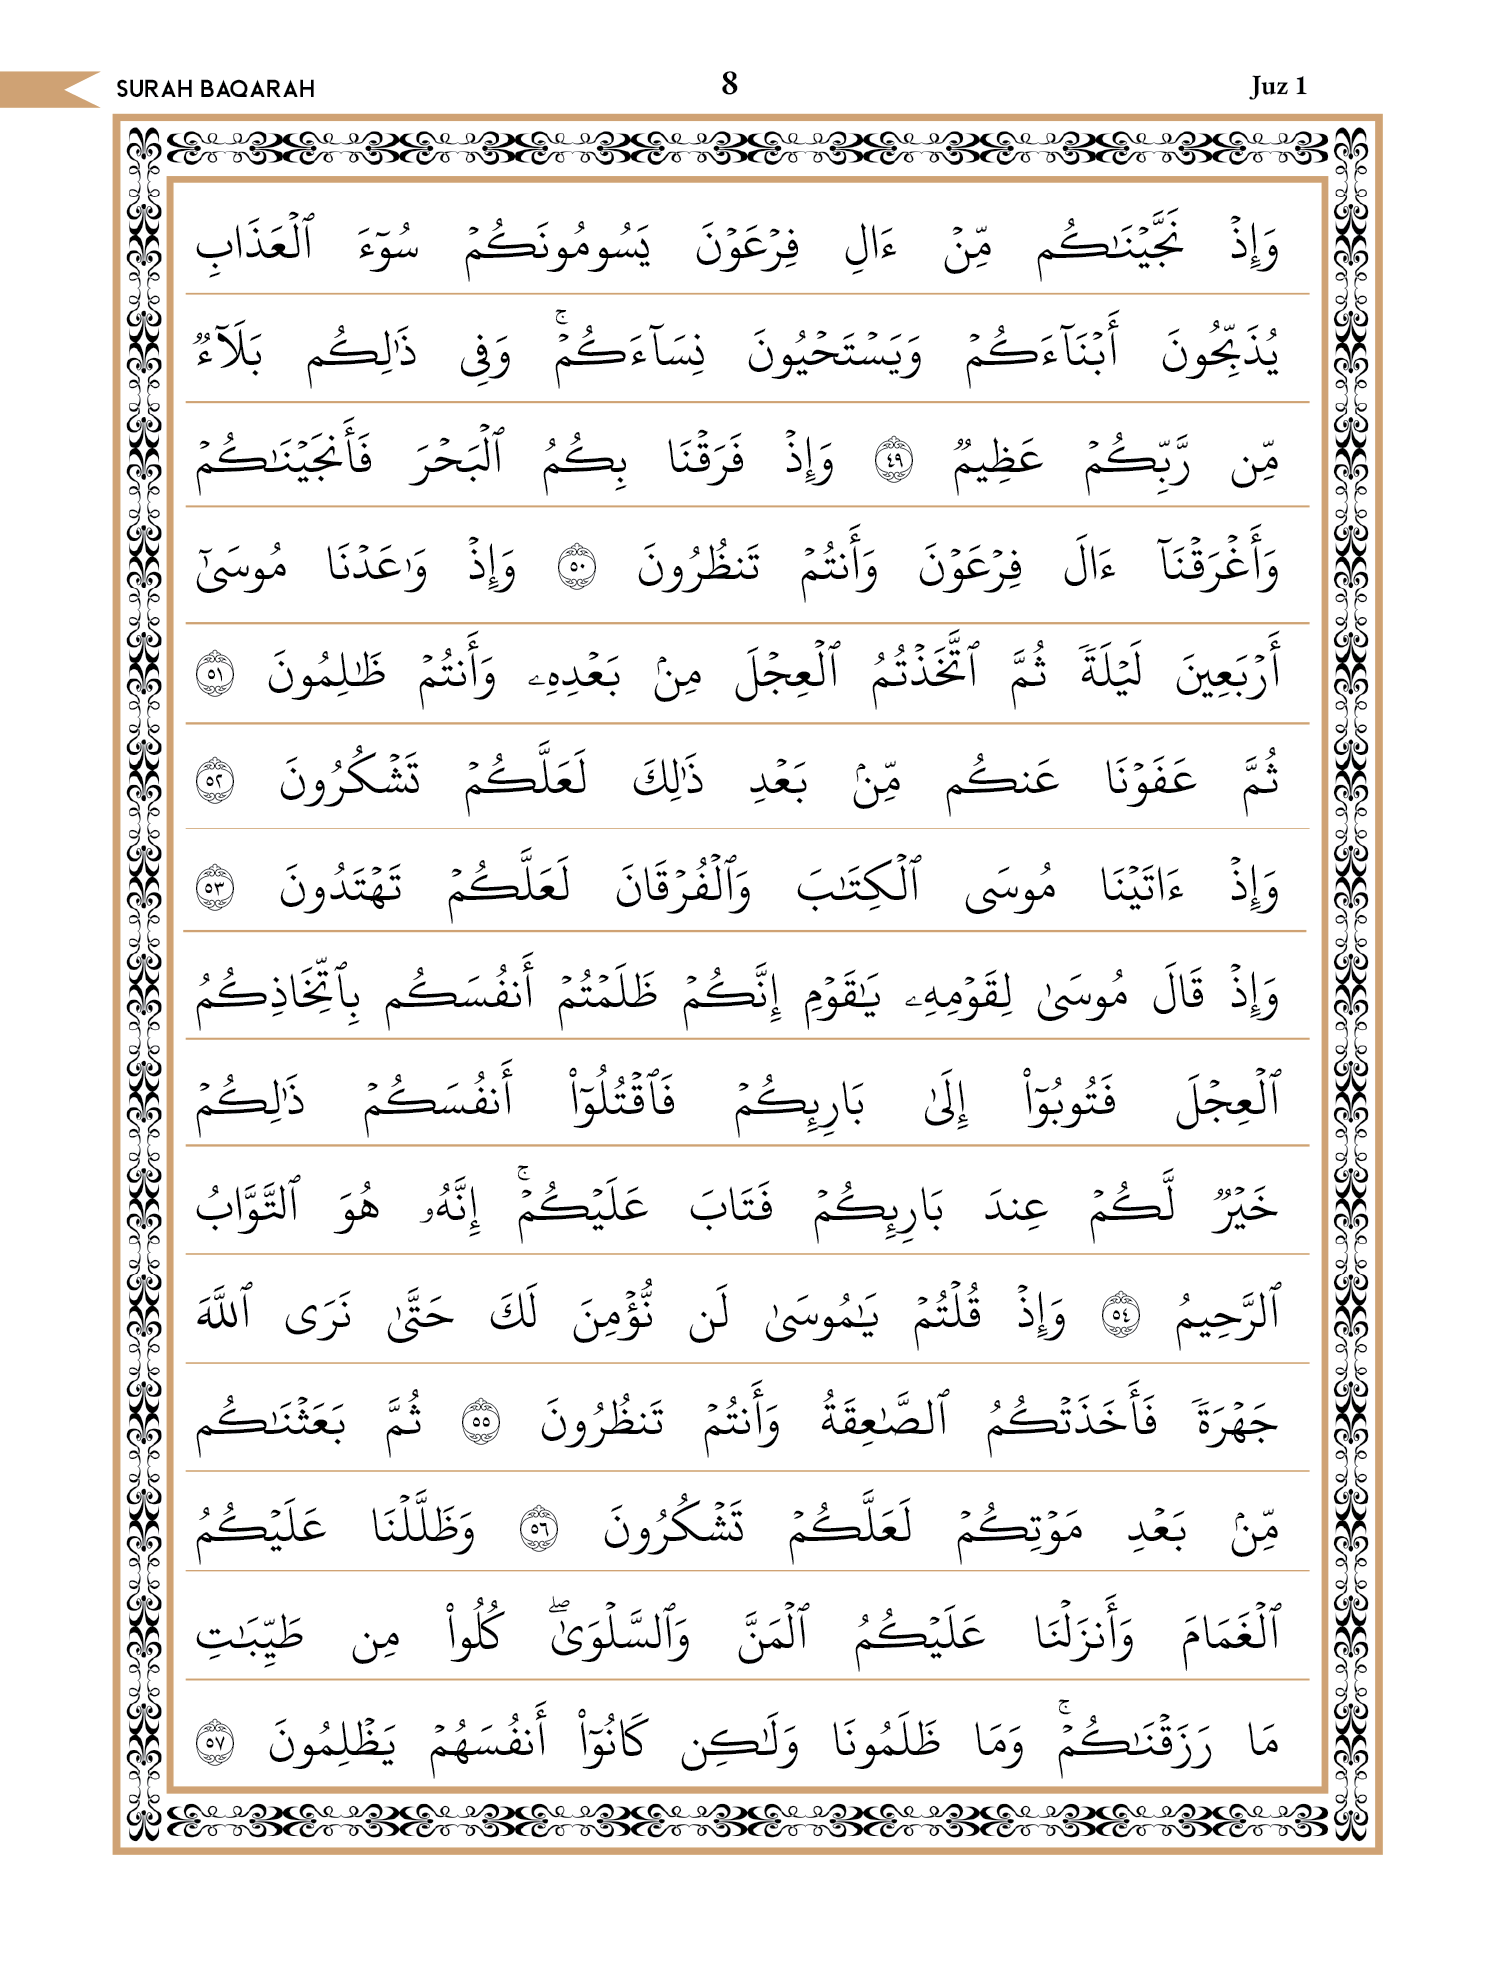 SURAH BAQARAH 8 Juz 1
وَإِذۡ نَجَّيۡنَٰكُم مِّنۡ ءَالِ فِرۡعَوۡنَ يَسُومُونَكُمۡ سُوٓءَ ٱلۡعَذَابِ
يُذَبِّحُونَ أَبۡنَآءَكُمۡ وَيَسۡتَحۡيُونَ نِسَآءَكُمۡۚ وَفِي ذَٰلِكُم بَلَآءٞ
مِّن رَّبِّكُمۡ عَظِيمٞ ٤٩ وَإِذۡ فَرَقۡنَا بِكُمُ ٱلۡبَحۡرَ فَأَنجَيۡنَٰكُمۡ
وَأَغۡرَقۡنَآ ءَالَ فِرۡعَوۡنَ وَأَنتُمۡ تَنظُرُونَ ٥٠ وَإِذۡ وَٰعَدۡنَا مُوسَىٰٓ
أَرۡبَعِينَ لَيۡلَةٗ ثُمَّ ٱتَّخَذۡتُمُ ٱلۡعِجۡلَ مِنۢ بَعۡدِهِۦ وَأَنتُمۡ ظَٰلِمُونَ ٥١
ثُمَّ عَفَوۡنَا عَنكُم مِّنۢ بَعۡدِ ذَٰلِكَ لَعَلَّكُمۡ تَشۡكُرُونَ ٥٢
وَإِذۡ ءَاتَيۡنَا مُوسَى ٱلۡكِتَٰبَ وَٱلۡفُرۡقَانَ لَعَلَّكُمۡ تَهۡتَدُونَ ٥٣
وَإِذۡ قَالَ مُوسَىٰ لِقَوۡمِهِۦ يَٰقَوۡمِ إِنَّكُمۡ ظَلَمۡتُمۡ أَنفُسَكُم بِٱتِّخَاذِكُمُ
ٱلۡعِجۡلَ فَتُوبُوٓاْ إِلَىٰ بَارِئِكُمۡ فَٱقۡتُلُوٓاْ أَنفُسَكُمۡ ذَٰلِكُمۡ
خَيۡرٞ لَّكُمۡ عِندَ بَارِئِكُمۡ فَتَابَ عَلَيۡكُمۡۚ إِنَّهُۥ هُوَ ٱلتَّوَّابُ
ٱلرَّحِيمُ ٥٤ وَإِذۡ قُلۡتُمۡ يَٰمُوسَىٰ لَن نُّؤۡمِنَ لَكَ حَتَّىٰ نَرَى ٱللَّهَ
جَهۡرَةٗ فَأَخَذَتۡكُمُ ٱلصَّٰعِقَةُ وَأَنتُمۡ تَنظُرُونَ ٥٥ ثُمَّ بَعَثۡنَٰكُم
مِّنۢ بَعۡدِ مَوۡتِكُمۡ لَعَلَّكُمۡ تَشۡكُرُونَ ٥٦ وَظَلَّلۡنَا عَلَيۡكُمُ
ٱلۡغَمَامَ وَأَنزَلۡنَا عَلَيۡكُمُ ٱلۡمَنَّ وَٱلسَّلۡوَىٰۖ كُلُواْ مِن طَيِّبَٰتِ
مَا رَزَقۡنَٰكُمۡۚ وَمَا ظَلَمُونَا وَلَٰكِن كَانُوٓاْ أَنفُسَهُمۡ يَظۡلِمُونَ ٥٧